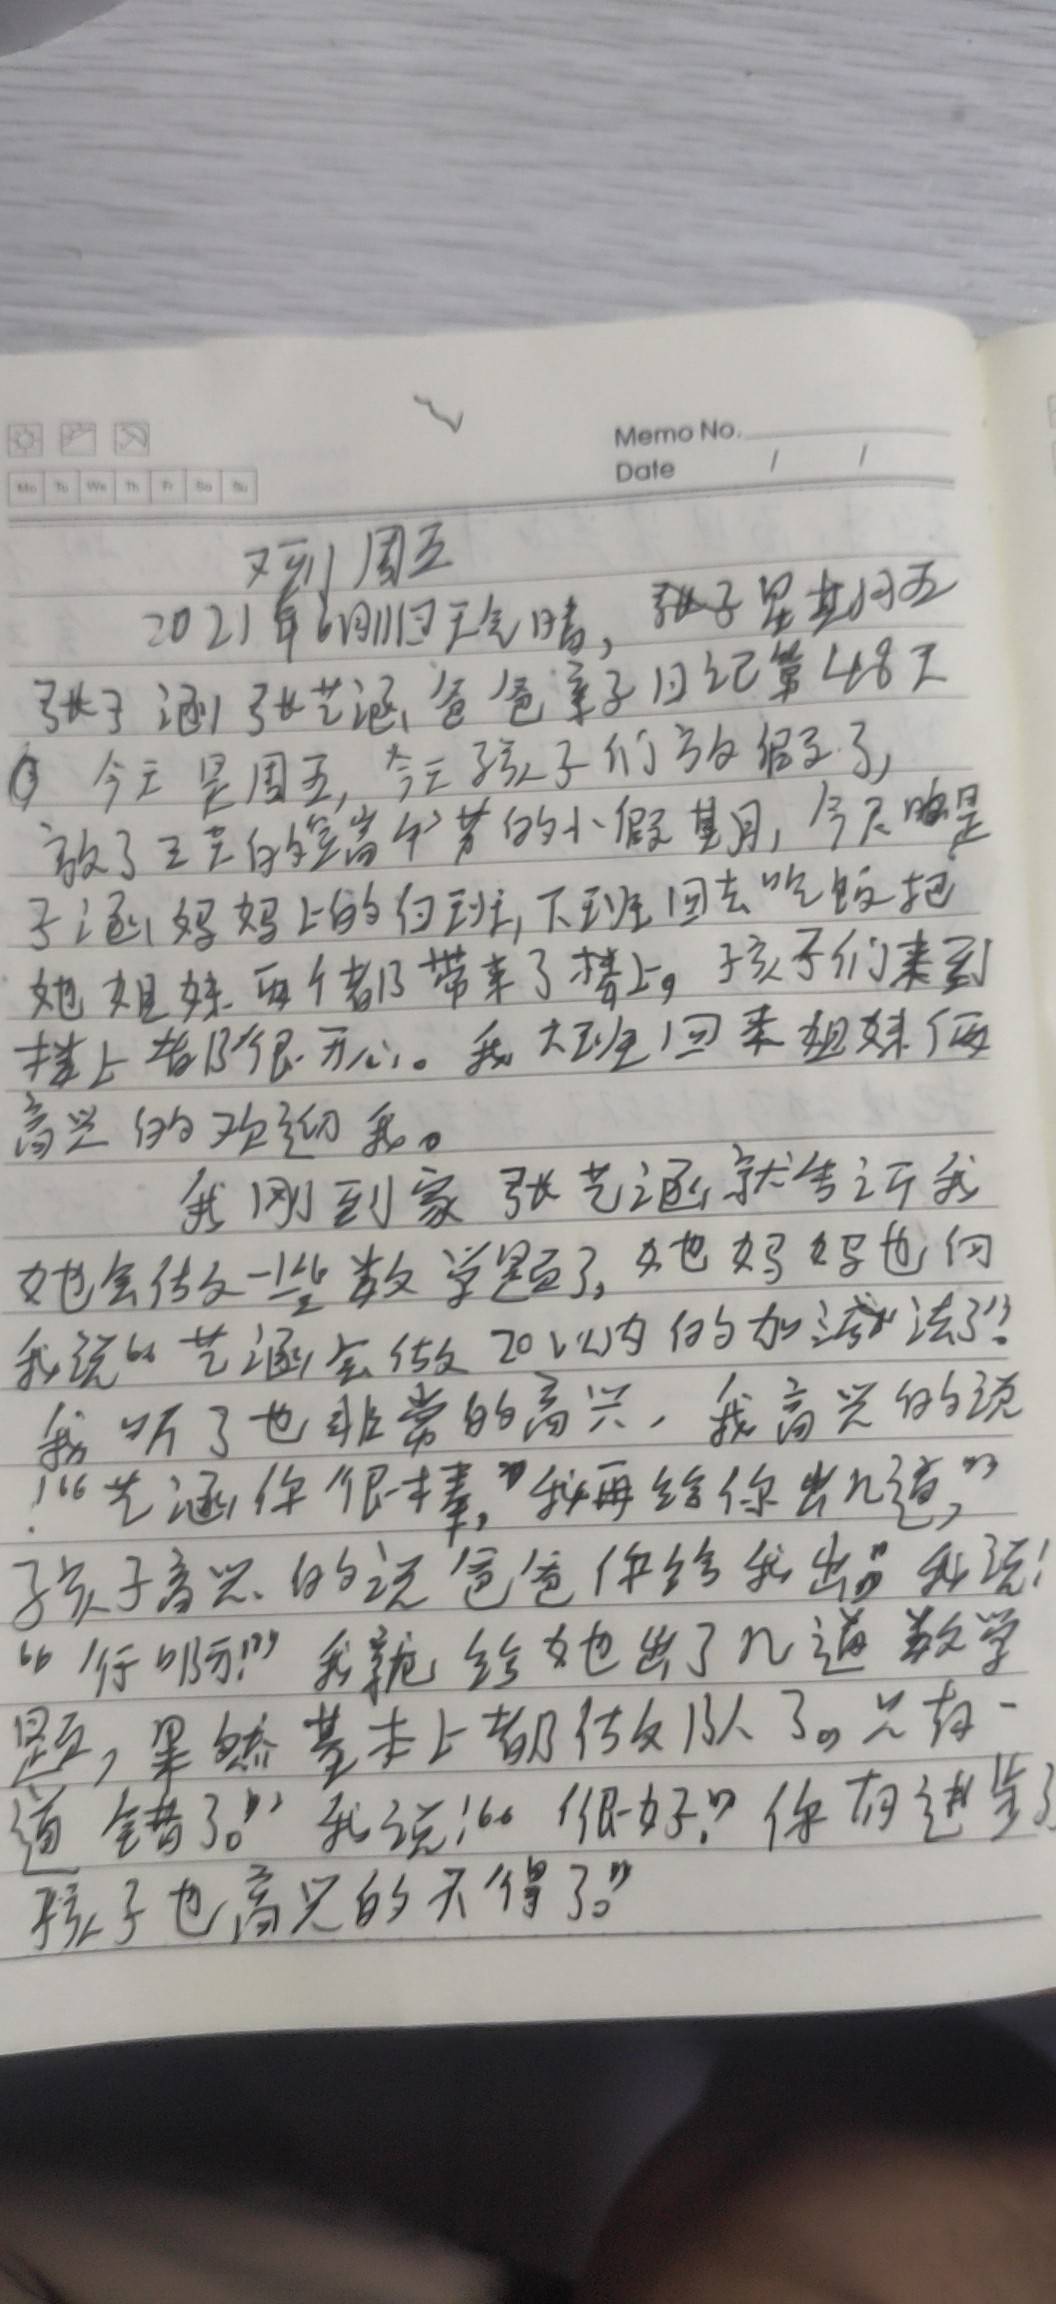 Memo No.
Date / /
Mo Tu We Th Fr Sa Su
又到周五
2021年6月11日天气晴, 星期五
张子涵张艺涵爸爸亲子日记第48天
今天是周五,今天孩子们放假了,
放了三天的端午节的小假期,今天是
子涵妈妈上的白班,下班回去吃饭把
她姐妹两个都带来了楼上。孩子们来到
楼上都很开心。我下班回来姐妹俩
高兴的欢迎我。
我刚到家张艺涵就告诉我
她会做一些数学题了,她妈妈也向
我说“艺涵会做20以内的加减法了”.
我听了也非常的高兴,我高兴的说
!“艺涵你很棒,”我再给你出几道,”
孩子高兴的说爸爸你给我出。”我说!
“行啊!”我就给她出了几道数学
题,果然基本上都做队了。只有一
道错了。”我说!“很好.”你有进步了
孩子也高兴的不得了。”